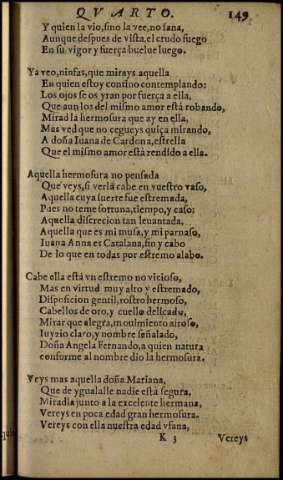 QVARTO. 149
Y quien la vio, sino la vee, no sana,
Aunque despues de vista, el crudo fuego
En su vigor y fuerça buelue luego.
Ya veo, ninfas, que mirays aquella
En quien estoy contino contemplando:
Los ojos se os yran por fuerça a ella,
Que aun los del mismo amor està robando,
Mirad la hermosura que ay en ella,
Mas ved que no cegueys quiça mirando,
A doña Iuana de Cardona, estrella
Que el mismo amor està rendido a ella.
Aquella hermosura no pensada
Que veys, si verla cabe en vuestro vaso,
Aquella cuya suerte fue estremada,
Pues no teme fortuna, tiempo, y caso:
Aquella discrecion tan leuantada,
Aquella que es mi musa, y mi parnaso,
Iuana Anna es Catalana, fin y cabo
De lo que en todas por estremo alabo.
Cabe ella està vn estremo no vicioso,
Mas en virtud muy alto y estremado,
Disposicion gentil, rostro hermoso,
Cabellos de oro, y cuello delicado,
Mirar que alegra, mouimiento ayroso,
Iuyzio claro, y nombre señalado,
Doña Angela Fernando, a quien natura
conforme al nombre dio la hermosura.
Veys mas aquella doña Mariana,
Que de ygualalle nadie està segura,
Miradla junto a la excelente hermana,
Vereys en poca edad gran hermosura.
Vereys con ella nuestra edad vfana,
K 3 Vereys